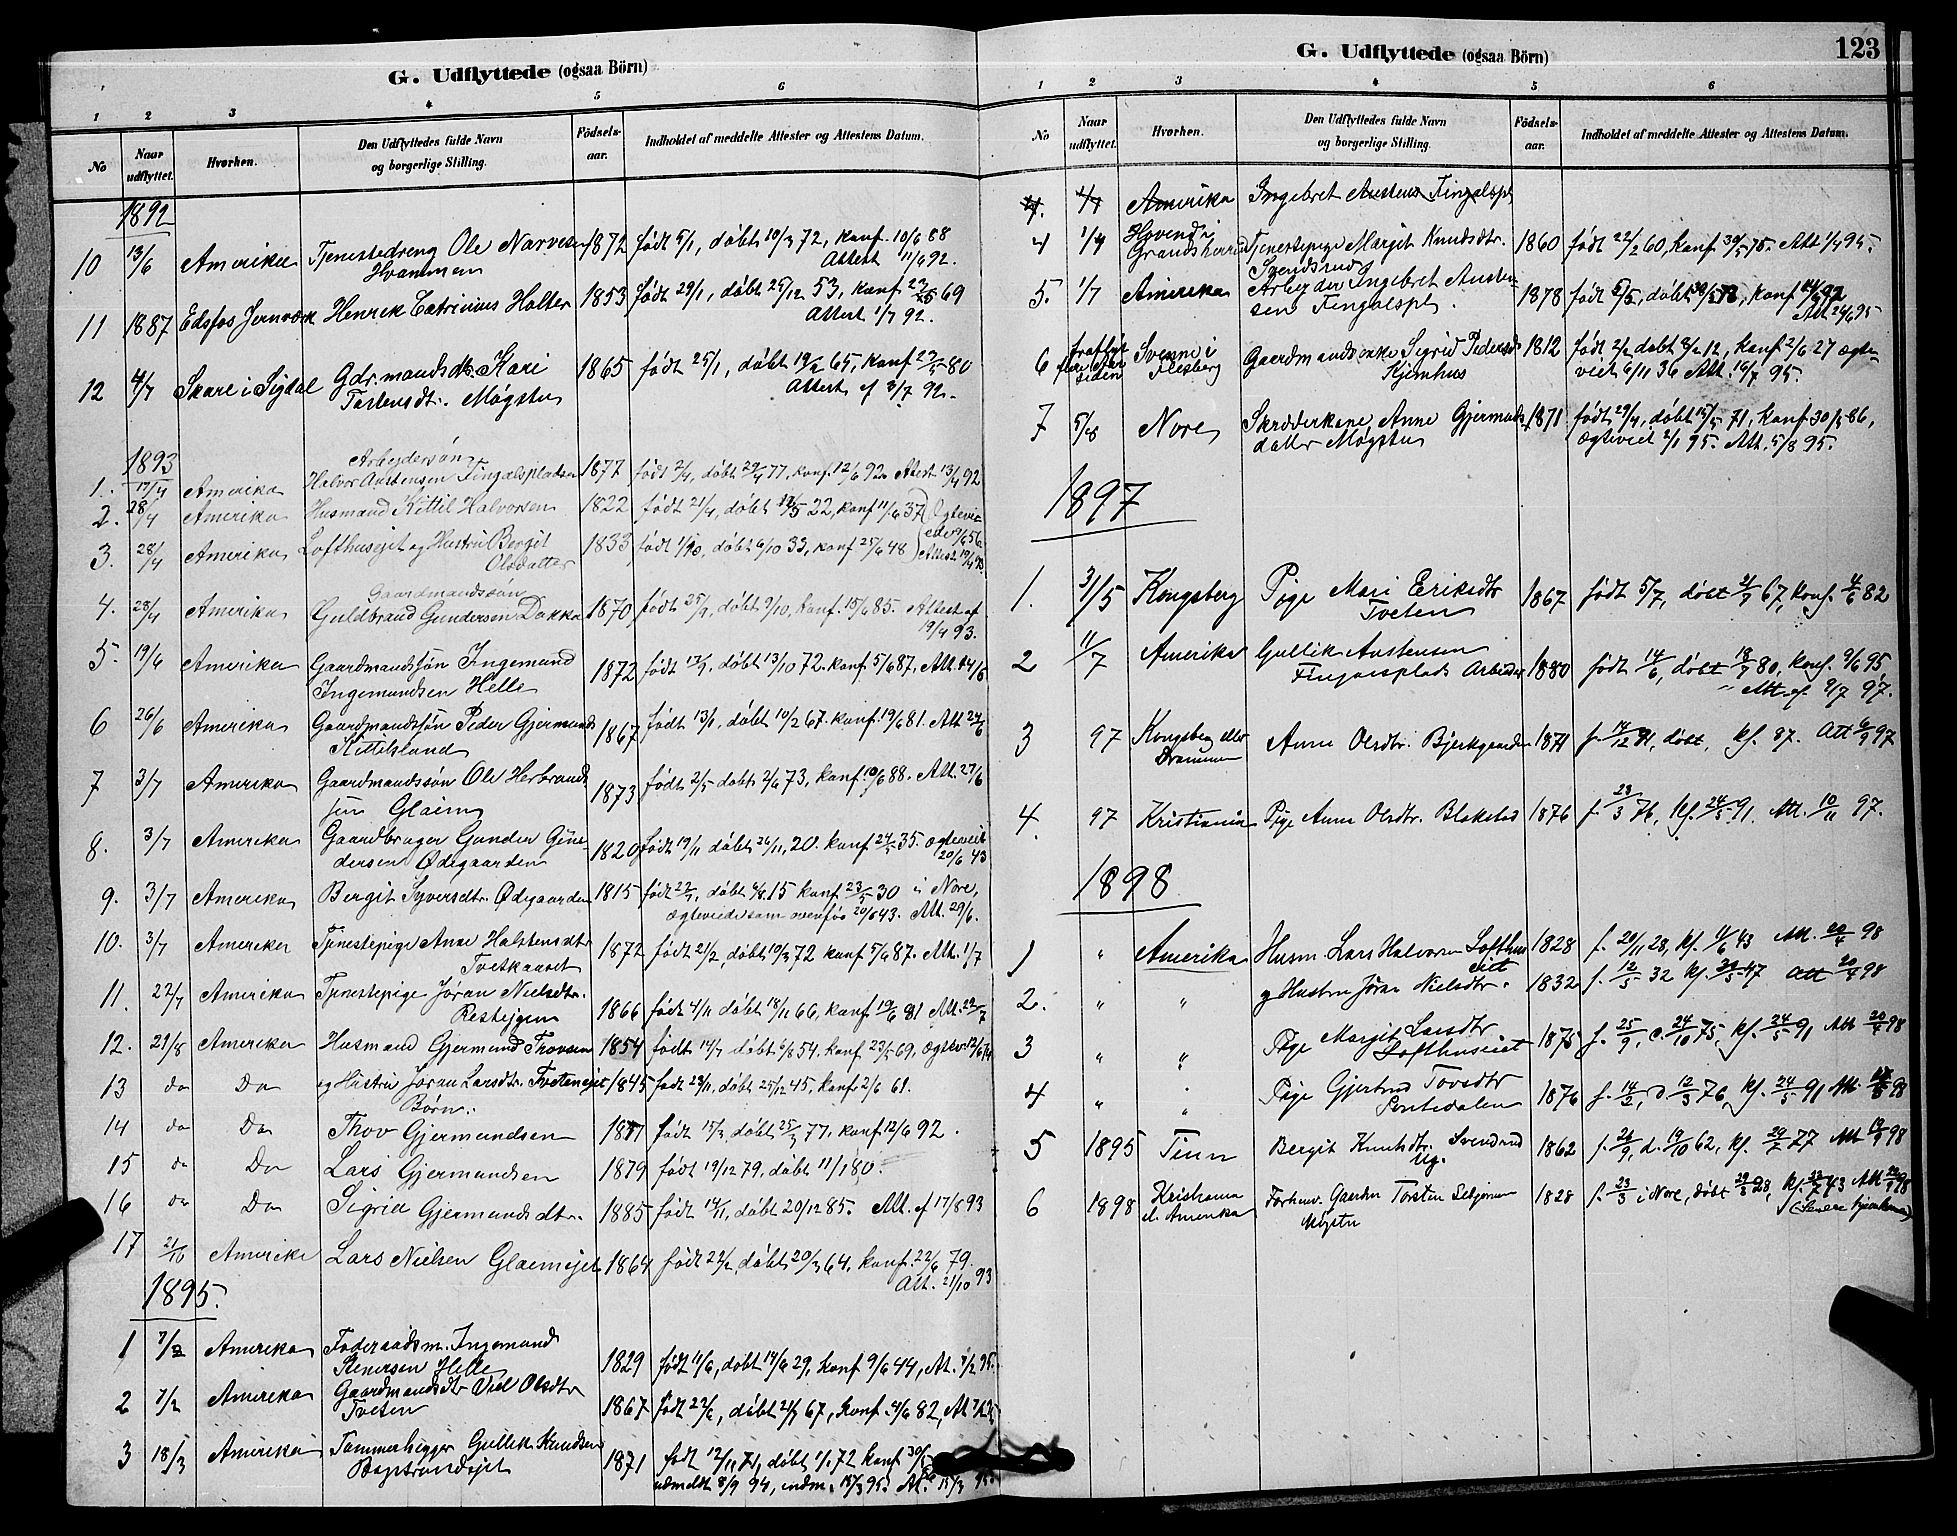 G. Udflyttede (ogsaa Börn)
1 2 3 4 5 6
No Naar udflyttet. Hvorhen. Den Udflyttedes fulde Navn og borgerlige Stilling. Födsels-aar. Indholdet af meddelte Attester og Attestens Datum.
1892
10 13/6 Amerika Tjenestedreng Ole Narvesen 1872 født 5/1, døbt 10/3 72, konf. 10/6 88
Hvammen Attest 11/6 92.
11 1887 Edsfos Jernværk Henrik Catrinius Holter 1853 født 29/1, døbt 25/12 53, konf 69
Attest 1/7 92.
12 4/7 Skare i Sigdal Gdr.mandsdtr. Kari 1865 født 25/1, døbt 19/2 65, konf 23/5 80
Torstensdtr. Møgster Attest af 3/7 92.
1893
Arbeydersøn
1. 17/4 Amerika Halvor Austensen Fingalspladsen 1877 født 2/4, døbt 29/4 77, konf 12/6 92 Attest 13/4 92
2. 28/4 Amerika Husmand Kittil Halvorsen 1822 født 21/4, døbt 19/5 22, konf 11/6 37 Ægtevi-
3. 28/4 Amerika Lofthusejet og Hustru Bergit 1833 født 1/10, døbt 6/10 33, konf 25/6 48
Olsdatter
Gaardmandssøn
4. 28/4 Amerika Guldbrand Gundersen Dokka 1870 født 25/9, døbt 9/10, konf. 15/6 85. Attest af
19/4 93.
5. 19/6 Amerika Gaardmandssøn Ingemund 1872 født 13/9, døbt 13/10 72. konf 5/6 87, Att. 14/6
Ingemundsen Helle
6 26/6 Amerika Gaardmandssøn Peder Gjermunds 1867 født 13/1, døbt 10/2 67. konf. 19/6 81. Att 24/6
Kittilsland
7 3/7 Amerika Gaardmandssøn Ole Herbrand- 1873 født 2/5 døbt 2/6 73, konf. 10/6 88. Att. 27/6
sen Glaim
8. 3/7 Amerika Gaardbruger Gunder Gun- 1820 født 19/11 døbt 26/11, 20. konf 24/5 35. ægteviet
dersen Ødegaarden 20/6 43
9. 3/7 Amerika Bergit Syversdtr. Ødegaarden 1815 født 22/7, døbt 15 konf 23/5 30 i Nore,
ægteviede som ovenfor 20/6 43. Att. 29/6.
10. 3/7 Amerika Tjenestepige Anne Halstensdtr 1872 født 21/2, døbt 10/3 72 konf 5/6 87. Att. 1/7
Tveskaaset
11. 22/7 Amerika Tjenestepige Jøran Nielsdtr. 1866 født 4/11 døbt 18/11 66, konf 19/6 81 Att. 22/7
Restejgen
12. 21/8 Amerika Husmand Gjermund Thovsen 1854 født 14/7 døbt 6/8 54, konf. 23/5 69, ægtev.
13 do Do og Hustru Jøran Larsdtr. Tvetenejet 1845 født 29/11, døbt 25/12 45, konf. 2/6 61.
Børn:
14 do Do Thov Gjermundsen 1877 født 15/3, døbt 25/3 77, konf. 12/6 92.
15 do Do Lars Gjermundsen 1879 født 19/12 79, døbt 11/1 80.
16 do Do Sigrid Gjermundsdtr. 1885 født 14/11, døbt 20/12 85. Att. af 17/8 93
17 21/10 Amerika Lars Nielsen Glaimejet 1864 født 22/2, døbt 20/3 64, konf. 22/6 79.
Att. 21/10 93
1895.
1 7/2 Amerika Føderaadsm. Ingemund
Stenersen Helle 1829 født 11/6, døbt 14/6 29, konf 9/6 44, At. 7/2 95.
2 7/2 Amerika Gaardmandsdtr Viel Olsdtr
Tveten 1867 født 22/6, døbt 21/7 67, konf. 4/6 82, At
3 18/3 Amerika Tømmerhugger Gullik Knudsen 1871 født 12/11 71, døbt 1/1 72 konf 30/5
Bagstrandejet udmeldt 8/9 94, indm. 15/3 95. At. 15/3 95.
G. Udflyttede (ogsaa Börn) 123
1 2 3 4 5 6
No Naar udflyttet. Hvorhen. Den Udflyttedes fulde Navn og borgerlige Stilling. Födsels-aar. Indholdet af meddelte Attester og Attestens Datum.
4. 4/7 Amerika Ingebret Austens Fingalspl
4 1/4 Hovend i
Grandsherred Tjenestepige Margit Knudsdtr. 1860 født 22/2 60, konf 30/5 75. Att 1/4 95.
Svendsrud
5. 1/7 Amerika Arbeyder Ingebret Austen-
sen Fingalspl. 1878 født 5/5, døbt 30/5 78, konf 92
Att. 24/6 95
6 Svenne i Gaardmandsenke Sigrid Pedersd 1812 født 2/2 døbt 8/2 12, konf 2/6 27 ægte-
siden Flesberg Kjemhus viet 6/11 36 Att. 16/7 95.
7 5/8 Nore Skrædderkone Anne Gjermunds 1871 født 29/4, døbt 15/5 71, konf 30/5 86,
datter Møgster ægteviet 2/1 95. Att. 5/8 95.
1897
1. 31/5 Kongsberg Pige Mari Eriksdtr 1867 født 5/7, døbt 21/7 67, konf. 4/6 82
Tveten
2 11/7 Amerika Gullik Austensen
Fingalsplads Arbeider 1880 født 14/6, døbt 18/7 80, konf. 9/6 95
Att. af 9/7 97.
3 97 Kongsberg eller Anne Olsdtr. Bjerkgaarden 1871 f. 14/12 71, døbt, kf. 87. Att 6/9 97
Drammen
4. 97 Kristiania Pige Anne Olsdtr. Blakstad 1876 f. 23/3 76, kf. 24/5 91, Att. 10/11 97.
1898
1 " Amerika Husm. Lars Halvorsen Lofthus 1828 f. 29/11 28, kf. 11/6 43 Att. 20/4 98
eiet
2. " " og Hustru Jøran Nielsdtr. 1832 f. 12/5 32 kf. 47 Att 20/4 98
3 " " Pige Margit Larsdtr 1875 f. 25/9, d. 24/10 75, kf. 24/5 91 Att 20/4 98
Lofthuseiet
4 " " Pige Gjertrud Tovsdtr 1876 f. 14/2, d 12/3 76, kf. 24/5 91 Att. 98
5 1895 Tinn Bergit Knutsdtr. Svendsrud 1862 f. 21/9, d. 19/10 62, kf. 77 Att 98
Ug.
6 1898 Kristiania Forhenv. Gaardm Torsten 1828 f. 23/3 i Nore, døbt 28, kf. 43 Att 98
el. Amerika Møgster